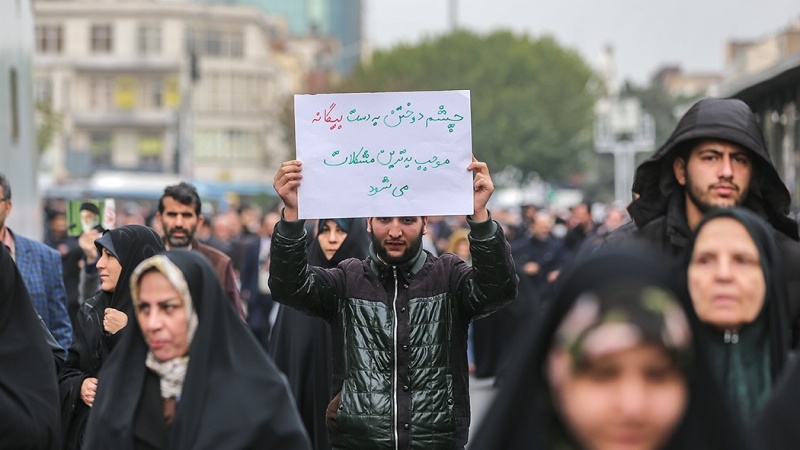 چشم دوختن به دست بیگانه
موجب بدترین مشکلات
می شود